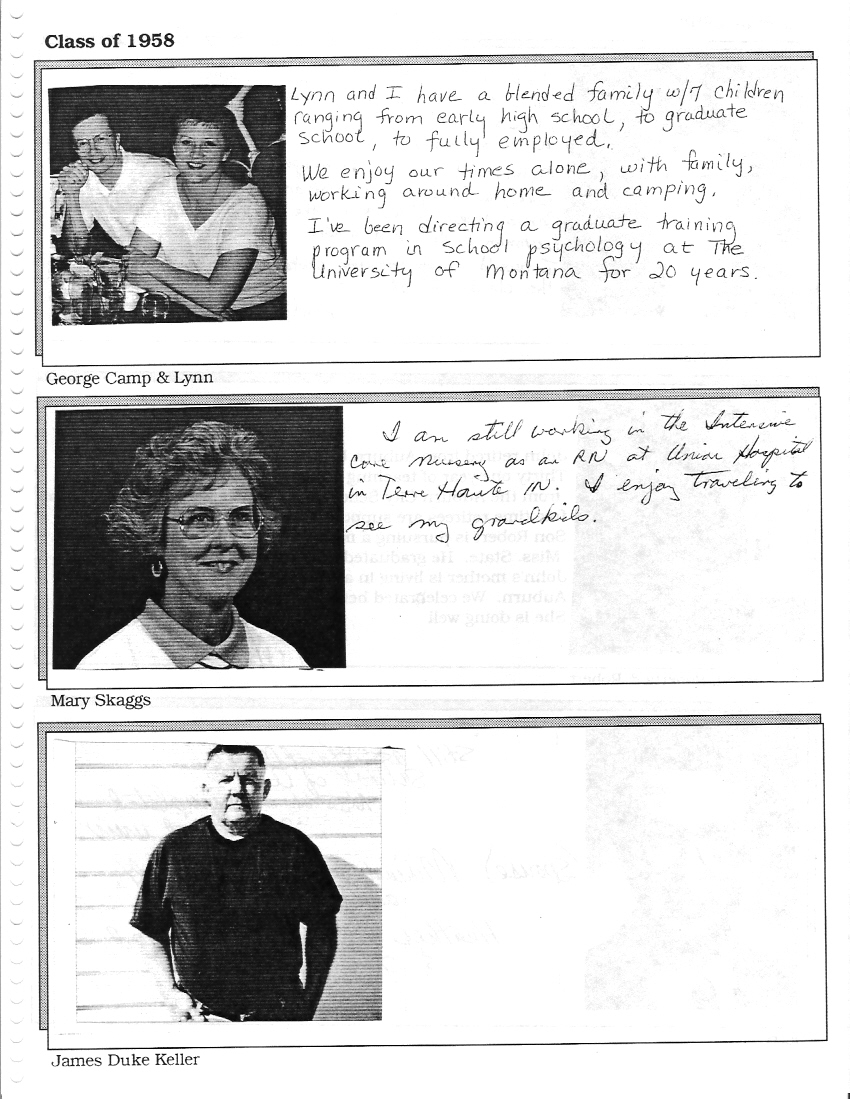 Class of 1958
Lynn and I have a blended family w/7 children
ranging from early high school, to graduate
school, to fully employed.
We enjoy our times alone, with family,
working around home and camping.
I've been directing a graduate training
program in School psychology at The
University of Montana for 20 years.
George Camp & Lynn
I am still working in the Intensive
care nursery as an RN at Union Hospital
in Terre Haute IN. I enjoy traveling to
see my grandkids.
Mary Skaggs
James Duke Keller